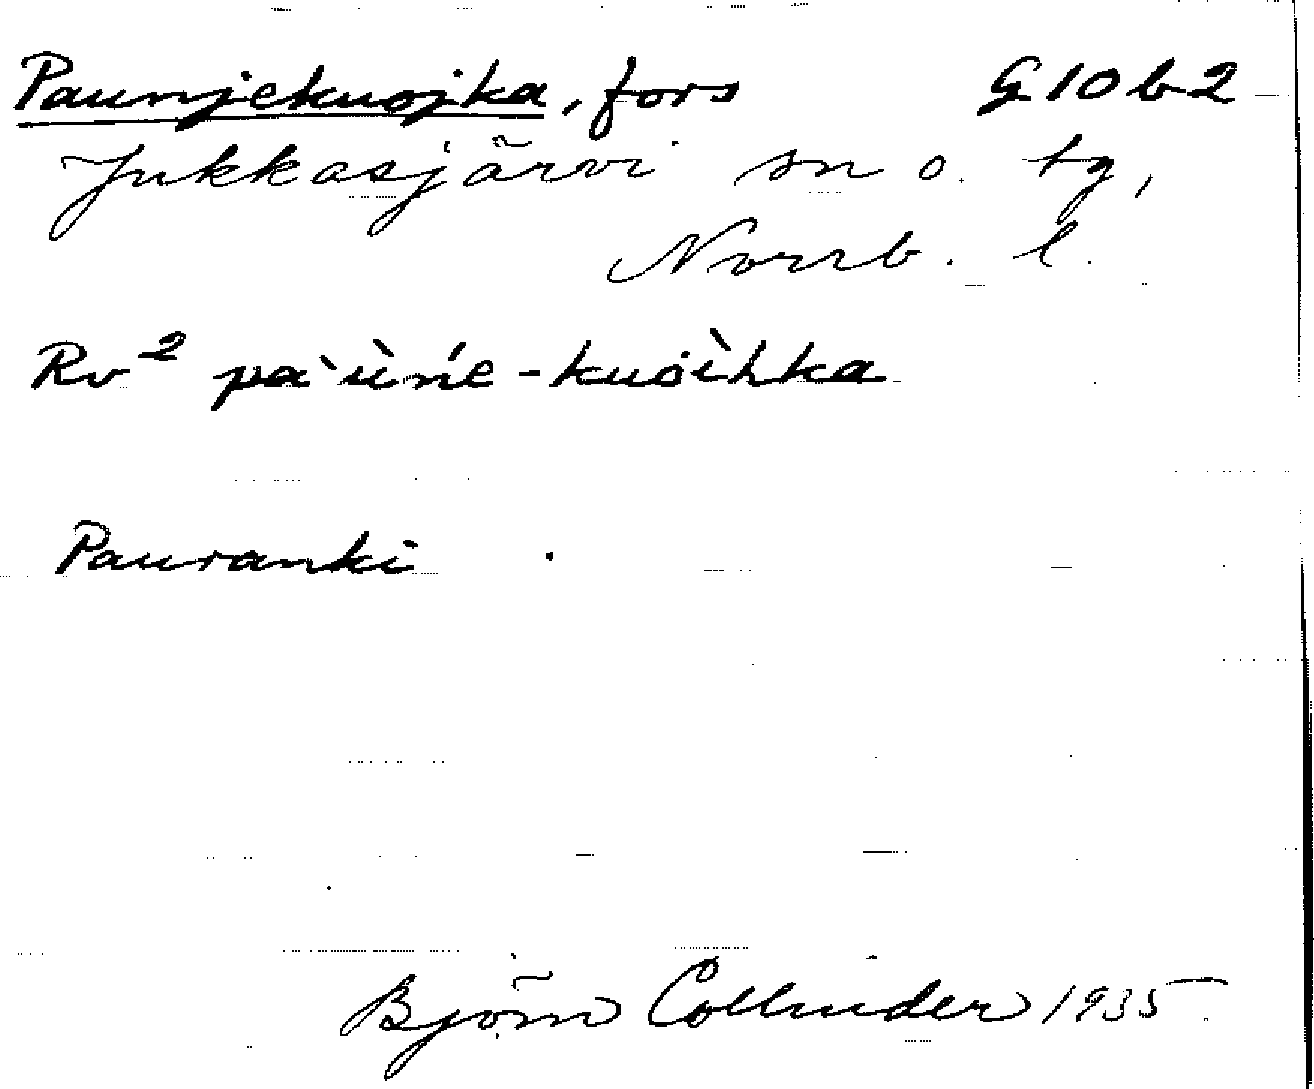 Paunjekuojka, fors G 10 b 2
Jukkasjärvi sn o. tg,
Norrb. l.
Rv² pa`ùńe-kuoìhka
Pauranki
Björn Collinder 1935